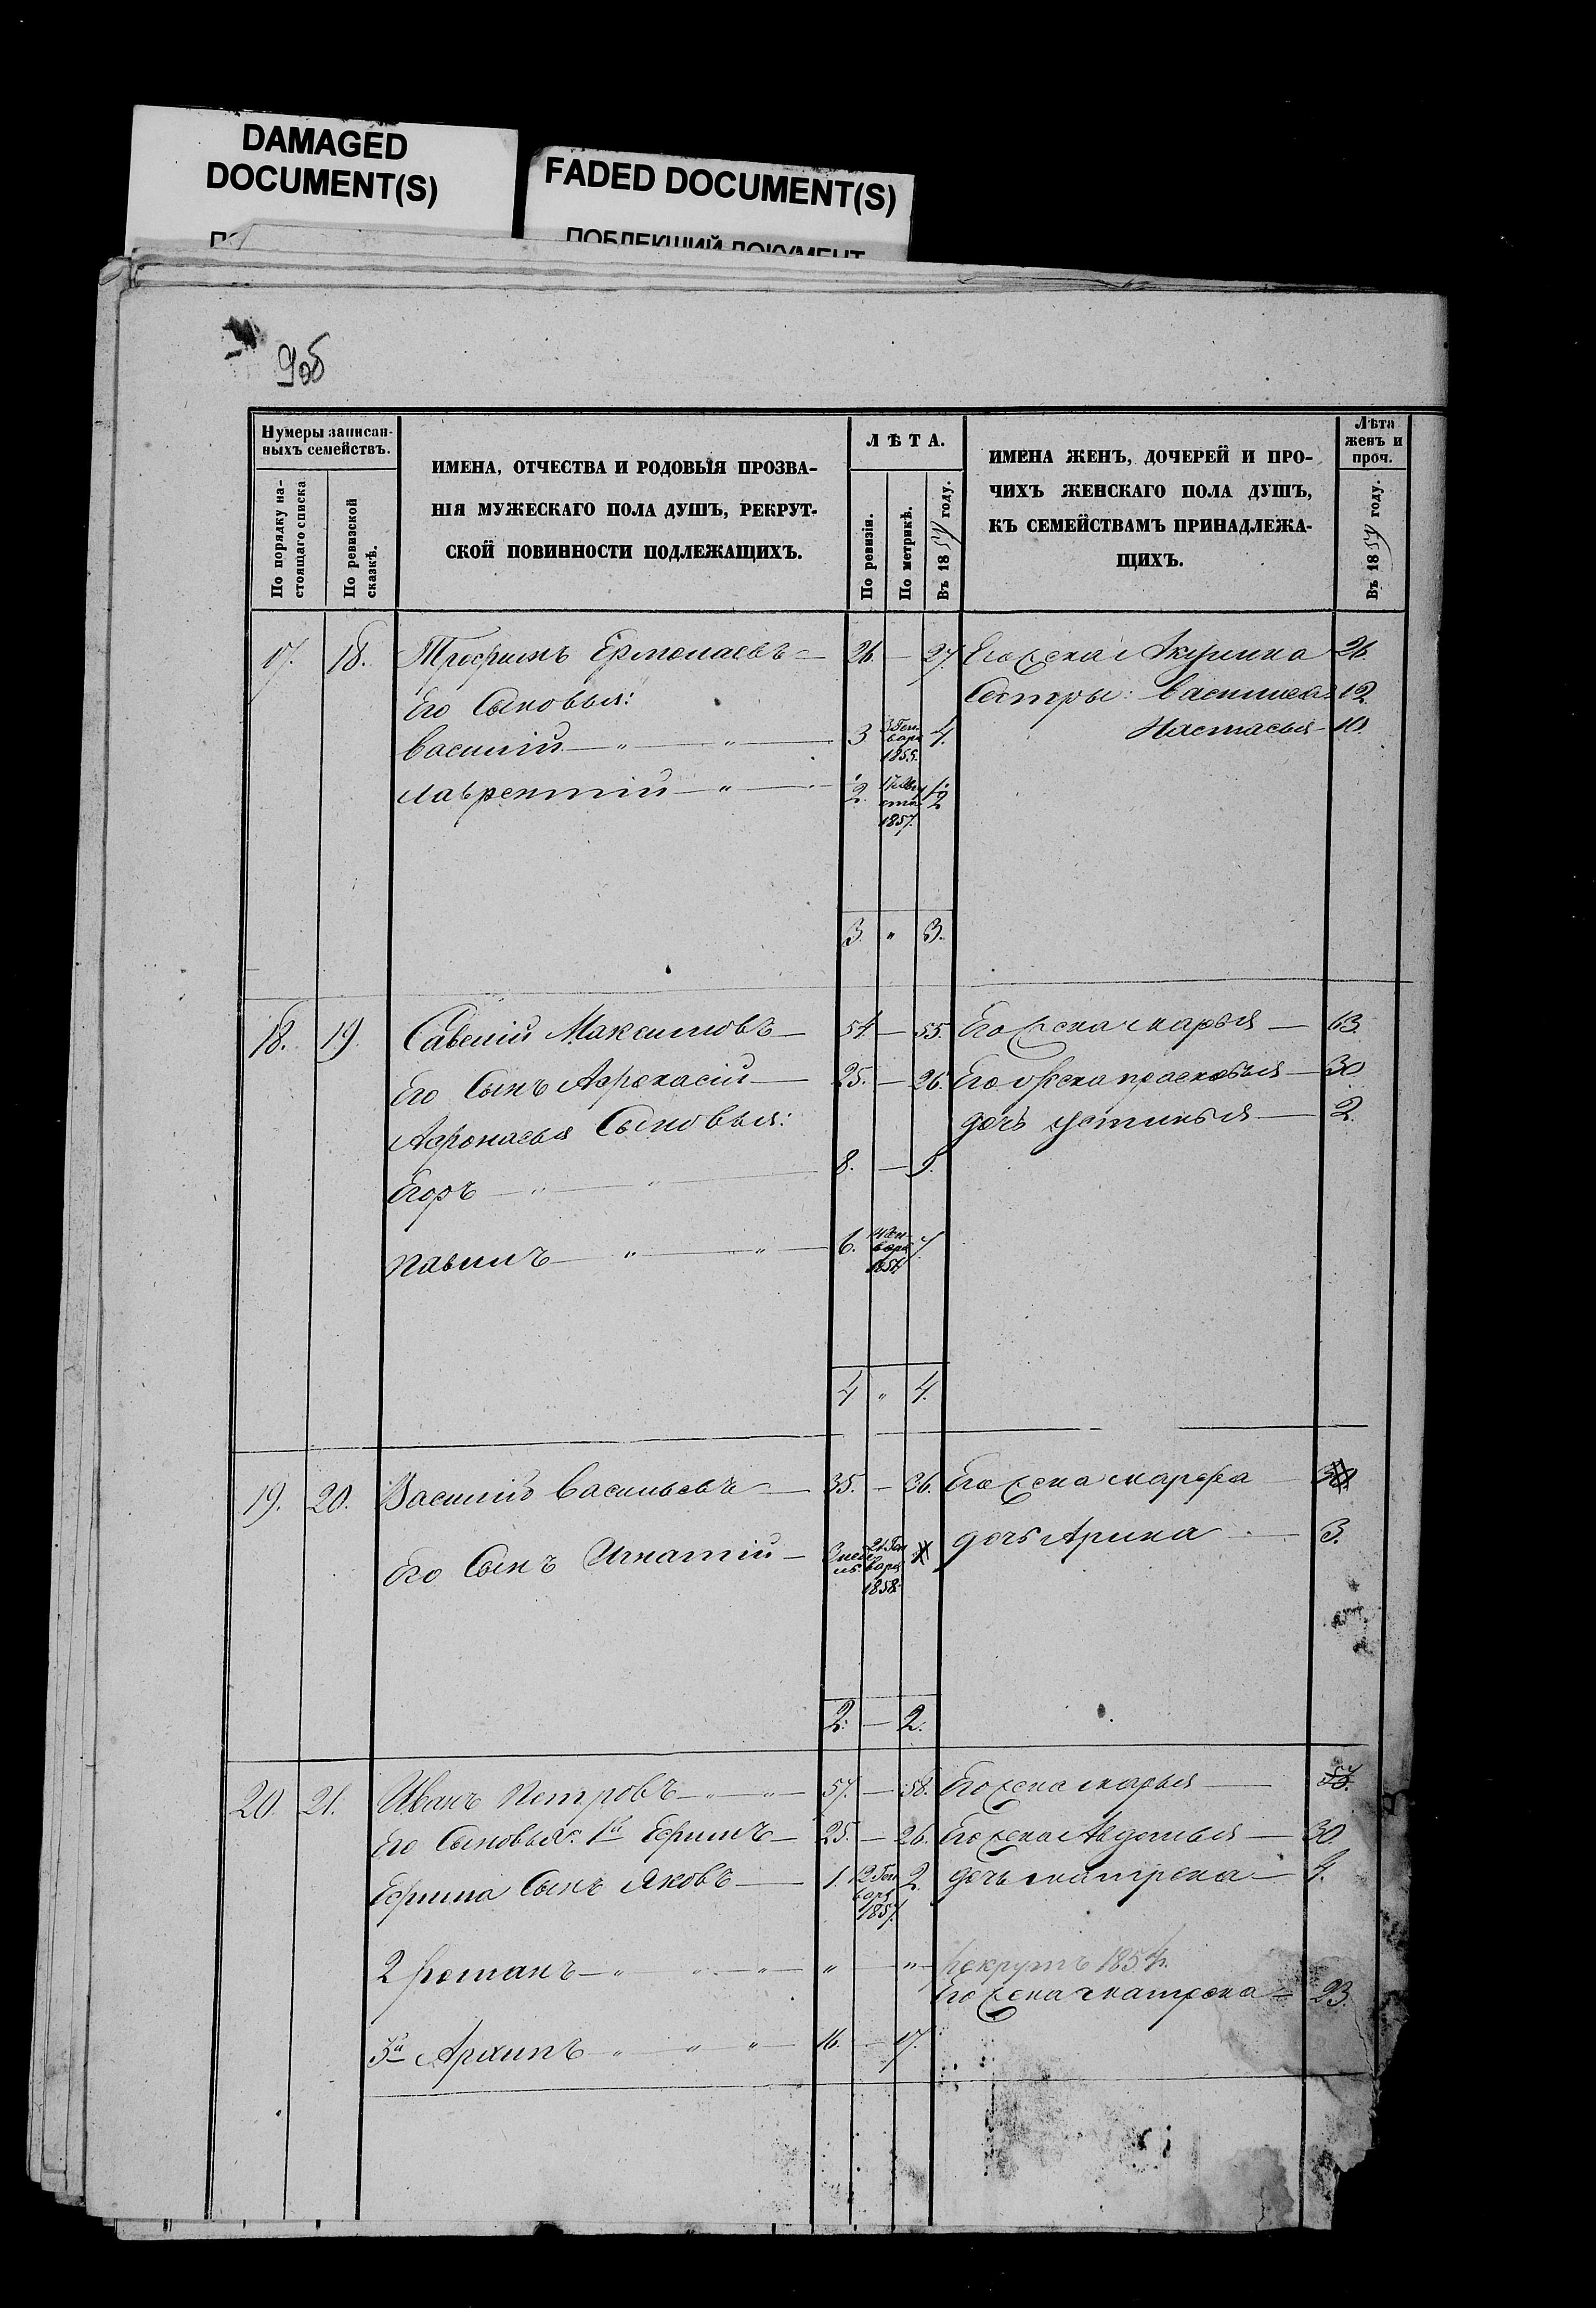 DAMAGED
DOCUMENT(S)
FADED DOCUMENT(S)
ПОБЛЕКШИЙ ДОКУМЕНТ
9об
Нумеры записан-
ныхъ семействъ.
По порядку на-
стоящаго списка
По ревизской
сказкѣ.
ИМЕНА, ОТЧЕСТВА И РОДОВЫЯ ПРОЗВА-
НІЯ МУЖЕСКАГО ПОЛА ДУШЪ, РЕКРУТ-
СКОЙ ПОВИННОСТИ ПОДЛЕЖАЩИХЪ.
ЛѢТА.
По ревизіи.
По метрикѣ.
Въ 1859 году.
ИМЕНА ЖЕНЪ, ДОЧЕРЕЙ И ПРО-
ЧИХЪ ЖЕНСКАГО ПОЛА ДУШЪ,
КЪ СЕМЕЙСТВАМЪ ПРИНАДЛЕЖА-
ЩИХЪ.
Лѣта
женъ и
проч.
Въ 1859 году.
17. 18. Трофимъ Ермолаевъ — 26. — 27. Его жена Акулина 26.
Его Сыновья: Сестры: Василиса 12.
Василій — " — " — 3 3 Ген-
варя
1855. 4. Настасья — 10.
Лаврентій — " — ½. 17 Авгу
ста
1857. 1½
3 " 3.
18. 19. Савелій Максимовъ — 54. — 55. Его жена Марья — 63.
Его Сынъ Афонасій — 25. — 26. Его жена Прасковья — 30
Афонасья Сыновья: дочь Устинья — 2.
Егоръ — " — " — 8. — 9.
Павилъ — " — " — 6. Ген-
варя 7.
4 " 4.
19. 20. Василій Васильевъ — 35. — 36. Его жена Марфа
Его Сынъ Игнатій — 21 Ген
варя
1858. дочь Арина — 3.
2. — 2.
20. 21. Иванъ Петровъ — " — " — 57. — 58. Его жена Марья —
Его Сыновья: 1й Ефимъ — 25. — 26. Его жена Авдотья — 30.
Ефима Сынъ Яковъ — 1. 12 Ген
варя
1857. 2. дочь Матрена — 4.
2 Романъ — " — " — " — " — " — рекрутъ 1854 г.
Его жена Матрена — 23.
3й Архипъ — " — " — " — 16. — 17.